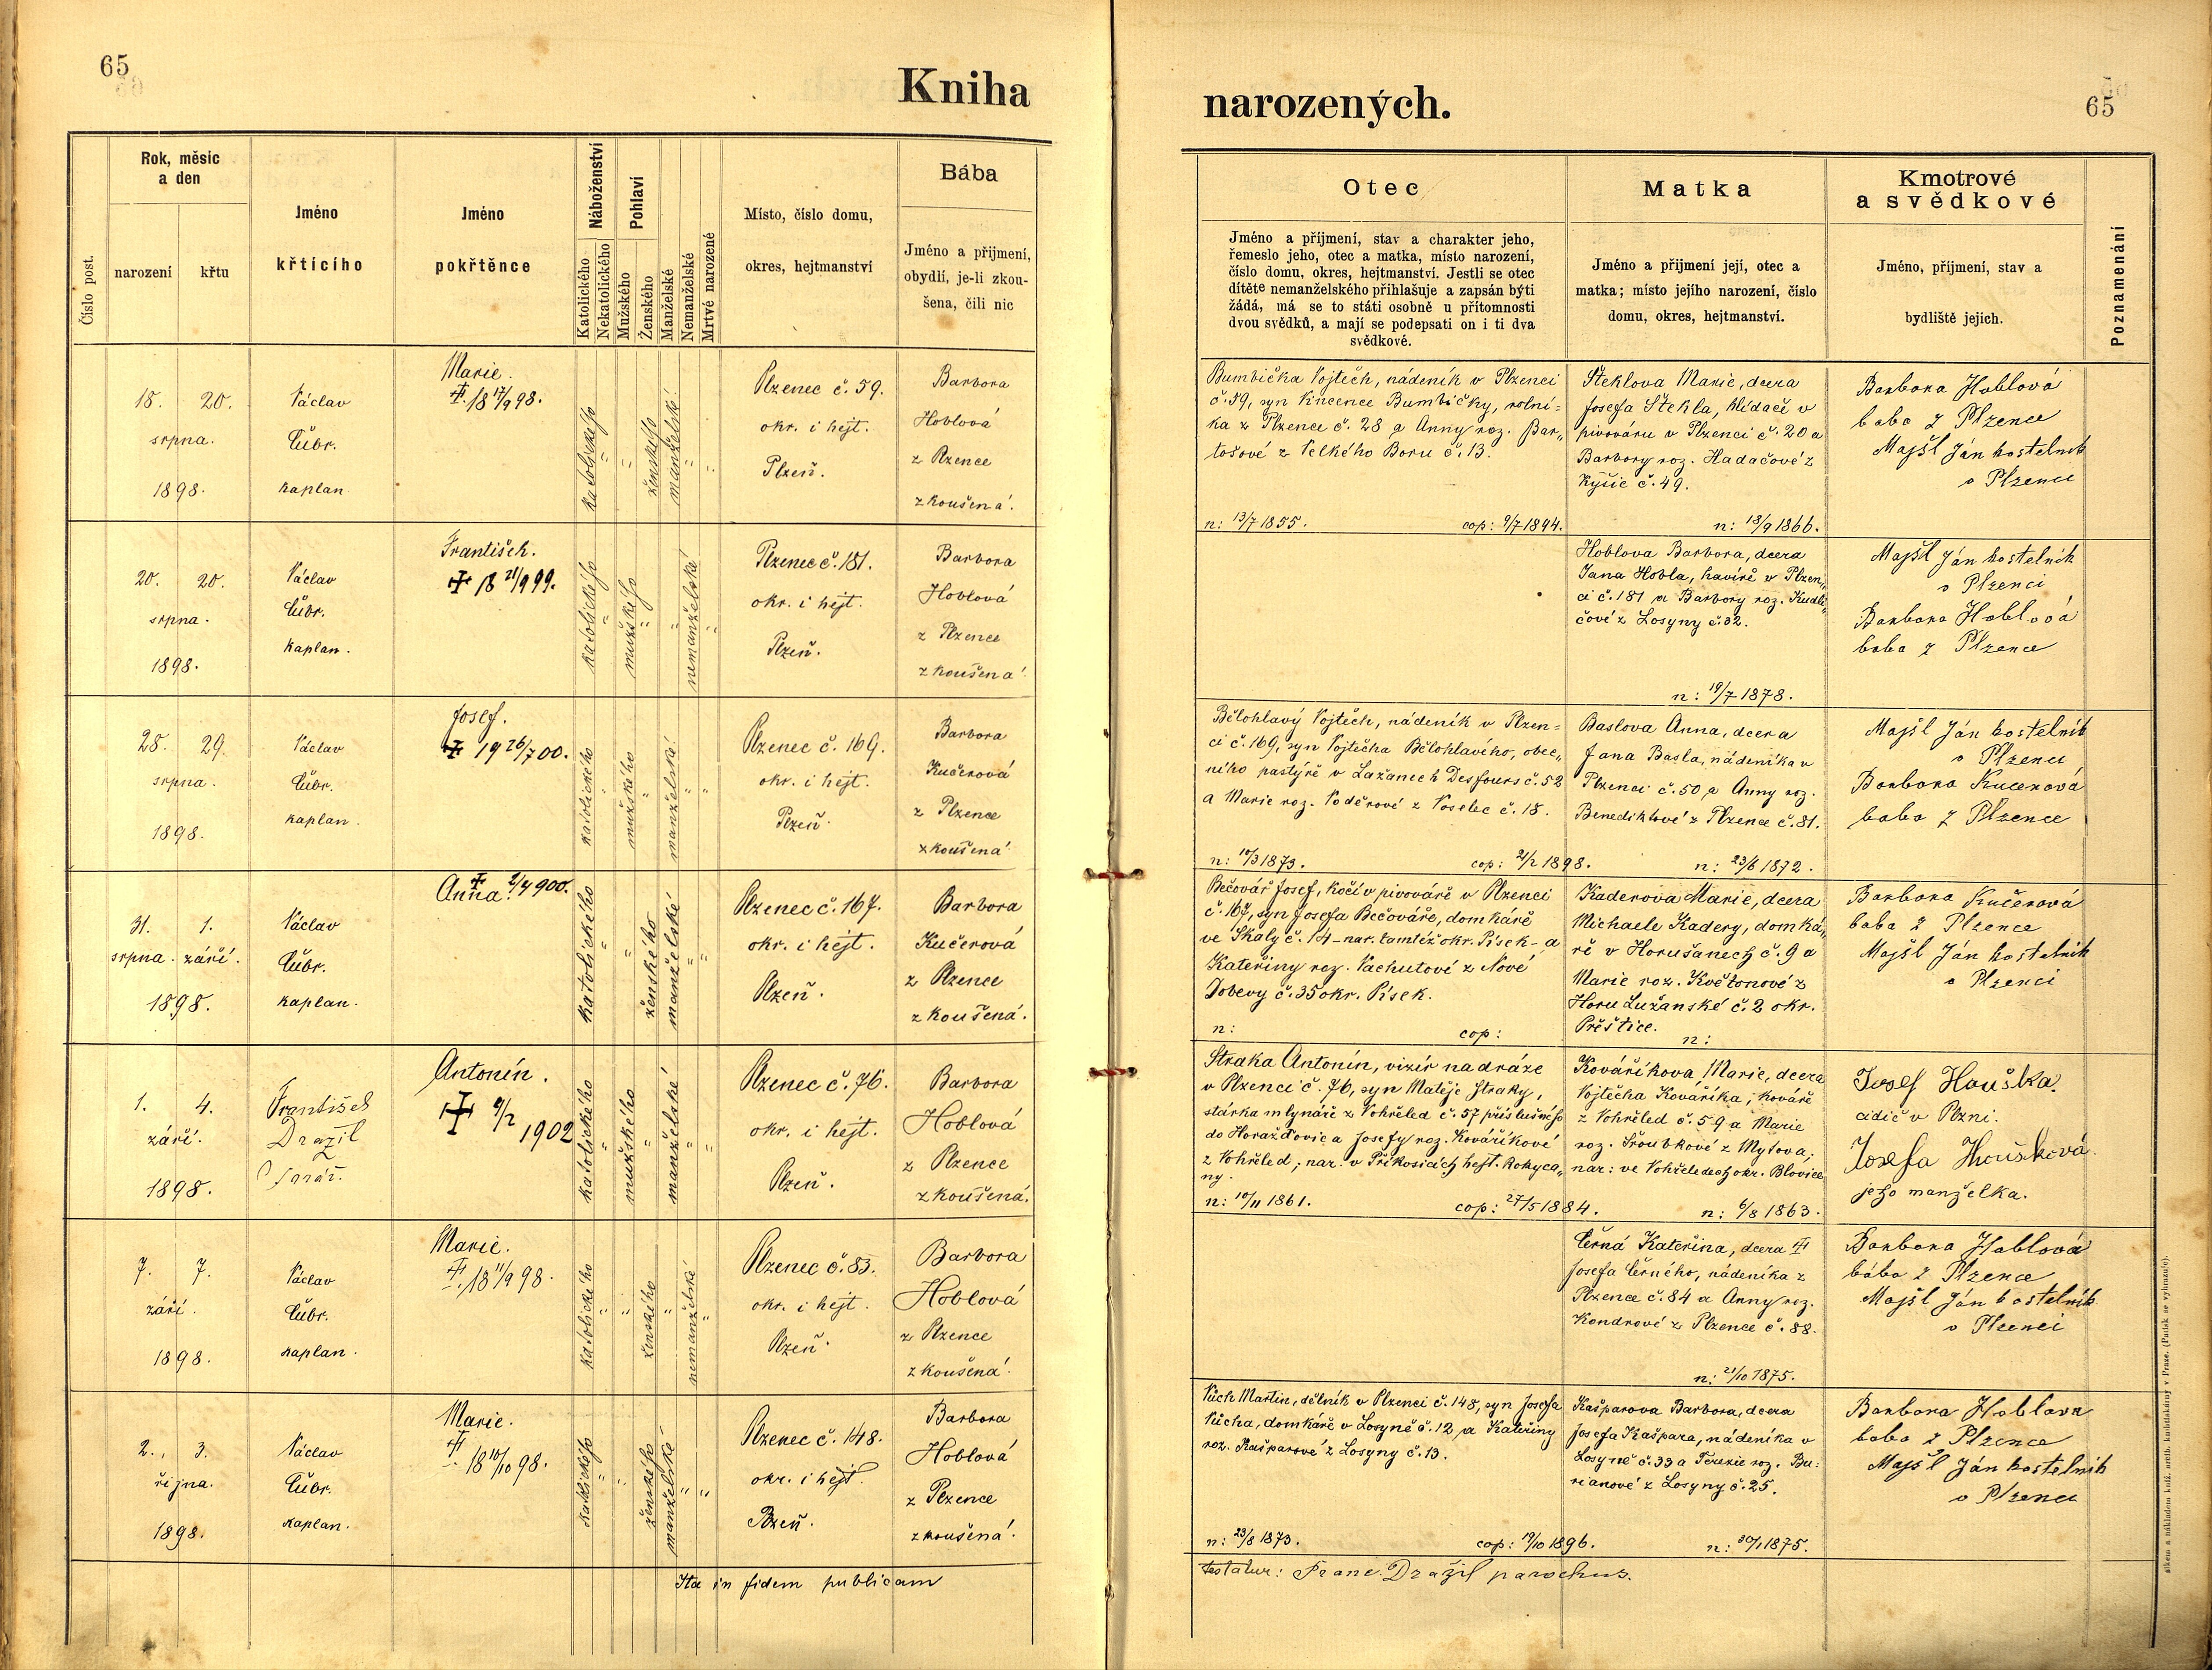 65
Kniha
Číslo post.
Rok, měsíc
a den
narození
křtu
Jméno
křtícího
Jméno
pokřtěnce
Náboženství
Katolického
Nekatolického
Pohlaví
Mužského
Ženského
Manželské
Nemanželské
Mrtvé narozené
Místo, číslo domu,
okres, hejtmanství
Bába
Jméno a přijmení,
obydlí, je-li zkou-
šena, čili nic
18. 20.
srpna.
1898.
Václav
Čúbr.
kaplan
Marie.
18 17/9 98.
katolického
ženského
manželské
Plzenec č. 59.
okr. i hejt.
Plzeň.
Barbora
Hoblová
z Plzence
zkoušená.
20. 20.
srpna.
1898.
Václav
Čúbr.
kaplan.
Františk.
18 21/9 99.
katolického
mužského
nemanželské
Plzenec č. 181.
okr. i hejt.
Plzeň.
Barbora
Hoblová
z Plzence
zkoušená
28. 29.
srpna.
1898.
Václav
Čúbr.
kaplan.
Josef.
19 26/7 00.
katolického
mužského
manželské
Plzenec č. 169.
okr. i hejt.
Plzeň.
Barbora
Kučerová
z Plzence
zkoušená
31. 1.
srpna. září.
1898.
Václav
Čúbr.
kaplan.
Anna. 900.
katolického
ženského
manželské
Plzenec č. 167.
okr. i hejt.
Plzeň.
Barbora
Kučerová
z Plzence
zkoušená.
1. 4.
září.
1898.
František
Dražil
farář.
Antonín.
1902
katolického
mužského
manželské
Plzenec č. 76.
okr. i hejt.
Plzeň.
Barbora
Hoblová
z Plzence
zkoušená.
7. 7.
září.
1898.
Václav
Čúbr.
kaplan.
Marie.
18 11/9 98.
katolického
ženského
nemanželské
Plzenec č. 83.
okr. i hejt.
Plzeň.
Barbora
Hoblová
z Plzence
zkoušená
2. 3.
října.
1898.
Václav
Čúbr.
kaplan.
Marie.
18 10/10 98.
katolického
ženského
manželské
Plzenec č. 148.
okr. i hejt.
Plzeň.
Barbora
Hoblová
z Plzence
zkoušená.
Ita in fidem publicam
narozených.
65
Otec
Jméno a příjmení, stav a charakter jeho,
řemeslo jeho, otec a matka, místo narození,
číslo domu, okres, hejtmanství. Jestli se otec
dítěte nemanželského přihlašuje a zapsán býti
žádá, má se to státi osobně u přítomnosti
dvou svědků, a mají se podepsati on i ti dva
svědkové.
Matka
Jméno a přijmení její, otec a
matka; místo jejího narození, číslo
domu, okres, hejtmanství.
Kmotrové
a svědkové
Jméno, příjmení, stav a
bydliště jejich.
Poznamenání
Bumbička Vojtěch, nádeník v Plzenci
č. 59, syn Vincence Bumbičky, rolní-
ka z Plzence č. 28 a Anny roz. Bar-
tošové z Velkého Boru č. 13.
n: 13/7 1855. cop: 9/7 1894.
Šteklova Marie, dcera
Josefa Štekla, hlídače v
pivováru v Plzenci č. 20 a
Barbory roz. Hadačové z
Kyšic č. 49.
n: 18/9 1866.
Barbora Hoblová
baba z Plzence
Majšl Ján kostelník
v Plzenci
Hoblova Barbora, dcera
Jana Hobla, havíře v Plzen-
ci č. 181 a Barbory roz. Kudli-
čové z Losyny č. 32.
n: 19/7 1878.
Majšl Ján kostelník
v Plzenci
Barbora Hoblová
baba z Plzence
Bělohlavý Vojtěch, nádeník v Plzen-
ci č. 169, syn Vojtěcha Bělohlavého, obec-
ního pastýře v Lažanech Desfours č. 52
a Marie roz. Voděrové z Voselec č. 18.
n: 10/3 1873. cop: 21/2 1898.
Baslova Anna, dcera
Jana Basla, nádeníka v
Plzenci č. 50 a Anny roz.
Benediktové z Plzence č. 81.
n: 23/6 1872.
Majšl Ján kostelník
v Plzenci
Barbora Kučerová
baba z Plzence
Bečovář Josef, kočí v pivováře v Plzenci
č. 167, syn Josefa Bečováře, domkáře
ve Skály č. 14 - nar. tamtéž okr. Písek - a
Kateřiny roz. Vachutové z Nové
Dobevy č. 35 okr. Písek.
n: cop:
Kaderova Marie, dcera
Michaele Kadery, domká-
ře v Horušanech č. 9 a
Marie roz. Květonové z
Horu Lužanské č. 2 okr.
Přeštice.
n:
Barbora Kučerová
baba z Plzence
Majšl Ján kostelník
v Plzenci
Straka Antonín, vizír na dráze
v Plzenci č. 76, syn Matěje Straky,
stárka mlynáře z Vohřeled č. 57 příslušného
do Horažďovic a Josefy roz. Kováříkové
z Vohřeled; nar. v Příkosicích hejt. Rokyca-
ny.
n: 10/11 1861. cop: 27/5 1884.
Kováříkova Marie, dcera
Vojtěcha Kováříka, kováře
z Vohřeled č. 59 a Marie
roz. Šroubkové z Mýtova;
nar: ve Vohřeledech okr. Blovice
n: 6/8 1863.
Josef Houška.
cidič v Plzni.
Josefa Houšková
jeho manželka.
Černá Kateřina, dcera
Josefa Černého, nádeníka z
Plzence č. 84 a Anny roz.
Kondrové z Plzence č. 88.
n: 21/10 1875.
Barbora Hoblová
bába z Plzence
Majšl Ján kostelník
v Plzenci
Vích Martin, dělník v Plzenci č. 148, syn Josefa
Vícha, domkáře v Losyně č. 12 a Kateřiny
roz. Kašparové z Losyny č. 13.
n: 23/8 1873. cop: 19/10 1896.
Kašparova Barbora, dcera
Josefa Kašpara, nádeníka v
Losyně č. 33 a Terezie roz. Bu-
rianové z Losyny č. 25.
n: 30/1 1875.
Barbora Hoblova
baba z Plzence
Majšl Ján kostelník
v Plzenci
testatur: Franc. Dražil parochus.